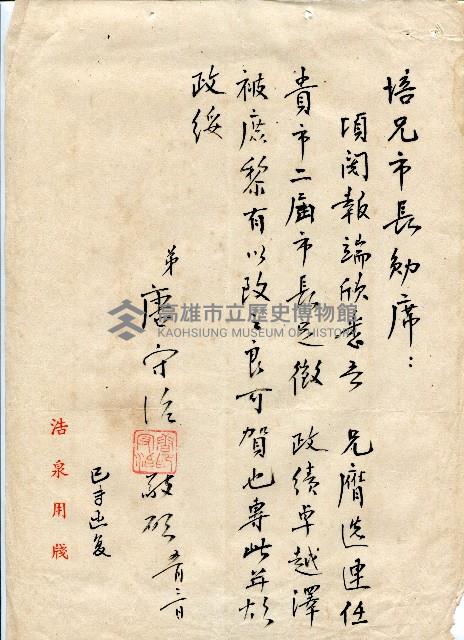 培兄市長勛席：
頃閱報端欣悉吾　兄膺選連任
貴市二屆市長足徵　政績卓越澤
被庶黎有以致之良可賀也專此並頌
政綏
弟
唐守治
敬啟 五月三日
已書函复
浩泉用牋
高雄市立歷史博物館
KAOHSIUNG MUSEUM OF HISTORY